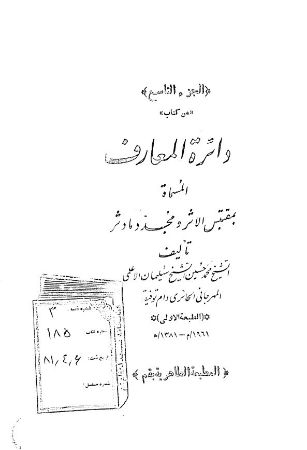 ﴿الجزء التاسع﴾
«من كتاب»
دائرة المعارف
المسماة
بمقتبس الاثر ومجدد ما دثر
تأليف
الشيخ محمد حسين الشيخ سليمان الاعلمي
المهرجاني الحائري دام توفيقه
(الطبعة الاولى)
١٩٦١/م - ١٣٨١/ه
﴿المطبعة العلمية بقم﴾
٣
١٨٥
٨١,٤,٦
شماره مسلسل: